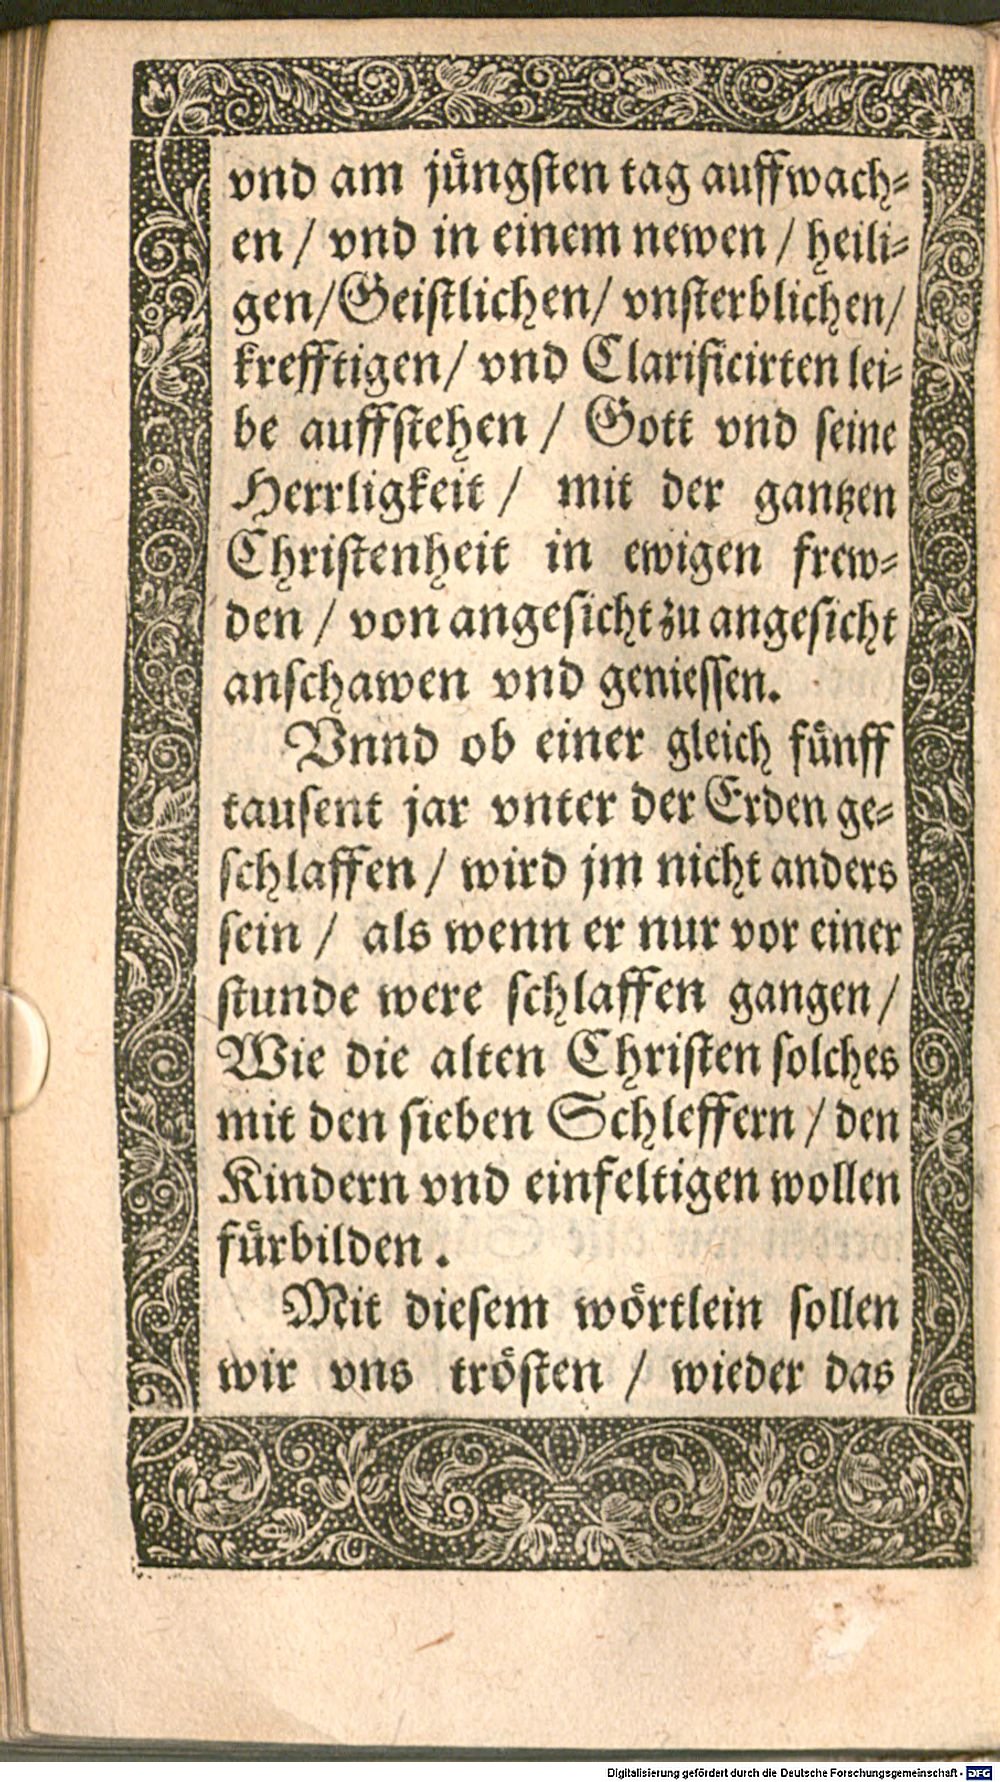 vnd am jüngsten tag auffwach⸗
en / vnd in einem newen / heili⸗
gen/ Geistlichen/ vnsterblichen/
krefftigen/ vnd Clarificirten lei⸗
be auffstehen / Gott vnd seine
Herrligkeit / mit der gantzen
Christenheit in ewigen frew⸗
den / von angesicht zu angesicht
anschawen vnd geniessen.
Vnnd ob einer gleich fünff
tausent jar vnter der Erden ge⸗
schlaffen / wird jm nicht anders
sein / als wenn er nur vor einer
stunde were schlaffen gangen /
Wie die alten Christen solches
mit den sieben Schleffern / den
Kindern vnd einfeltigen wollen
fürbilden.
Mit diesem wörtlein sollen
wir vns trösten / wieder das
Digitalisierung gefördert durch die Deutsche Forschungsgemeinschaft - DFG